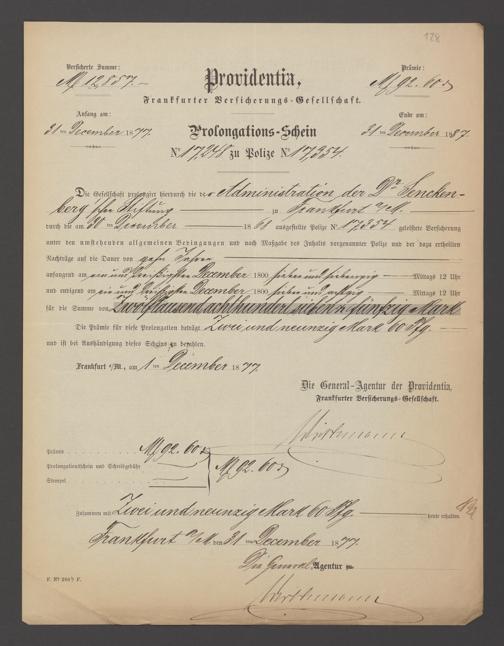 128
Versicherte Summe:
M 12,857.–
Prämie:
M 92.60 ₰
Providentia,
Frankfurter Versicherungs-Gesellschaft.
Anfang am:
31ten December 1877.
Ende am:
31ten December 1887.
Prolongations-Schein
No 17,248 zu Polize No 17,354.
Die Gesellschaft prolongirt hierdurch die der Administration der Dr Sencken-
berg'schen Stiftung zu Frankfurt a/M.
durch die am 30 December 1868 ausgestellte Polize No 17,354 geleistete Versicherung
unter den umstehenden allgemeinen Bedingungen und nach Maßgabe des Inhalts vorgenannter Polize und der dazu ertheilten
Nachträge auf die Dauer von zehn Jahren
anfangend am ein und dreißigsten December 1800 sieben und siebenzig Mittags 12 Uhr
und endigend am ein und dreißigsten December 1800 sieben und achtzig Mittags 12 Uhr
für die Summe von Zwölftausend achthundert sieben u. fünfzig Mark
Die Prämie für diese Prolongation beträgt Zwei und neunzig Mark 60 Pfg.
und ist bei Aushändigung dieses Scheins zu bezahlen.
Frankfurt a/M., am 1 December 1877.
Die General-Agentur der Providentia,
Frankfurter Versicherungs-Gesellschaft.
Prämie M 92.60 ₰
Prolongationsschein und Schreibgebühr
M 92.60 ₰
Stempel
Zusammen mit Zwei und neunzig Mark 60 Pfg. heute erhalten.
Frankfurt a/M. den 31 December 1877.
Die General-Agentur